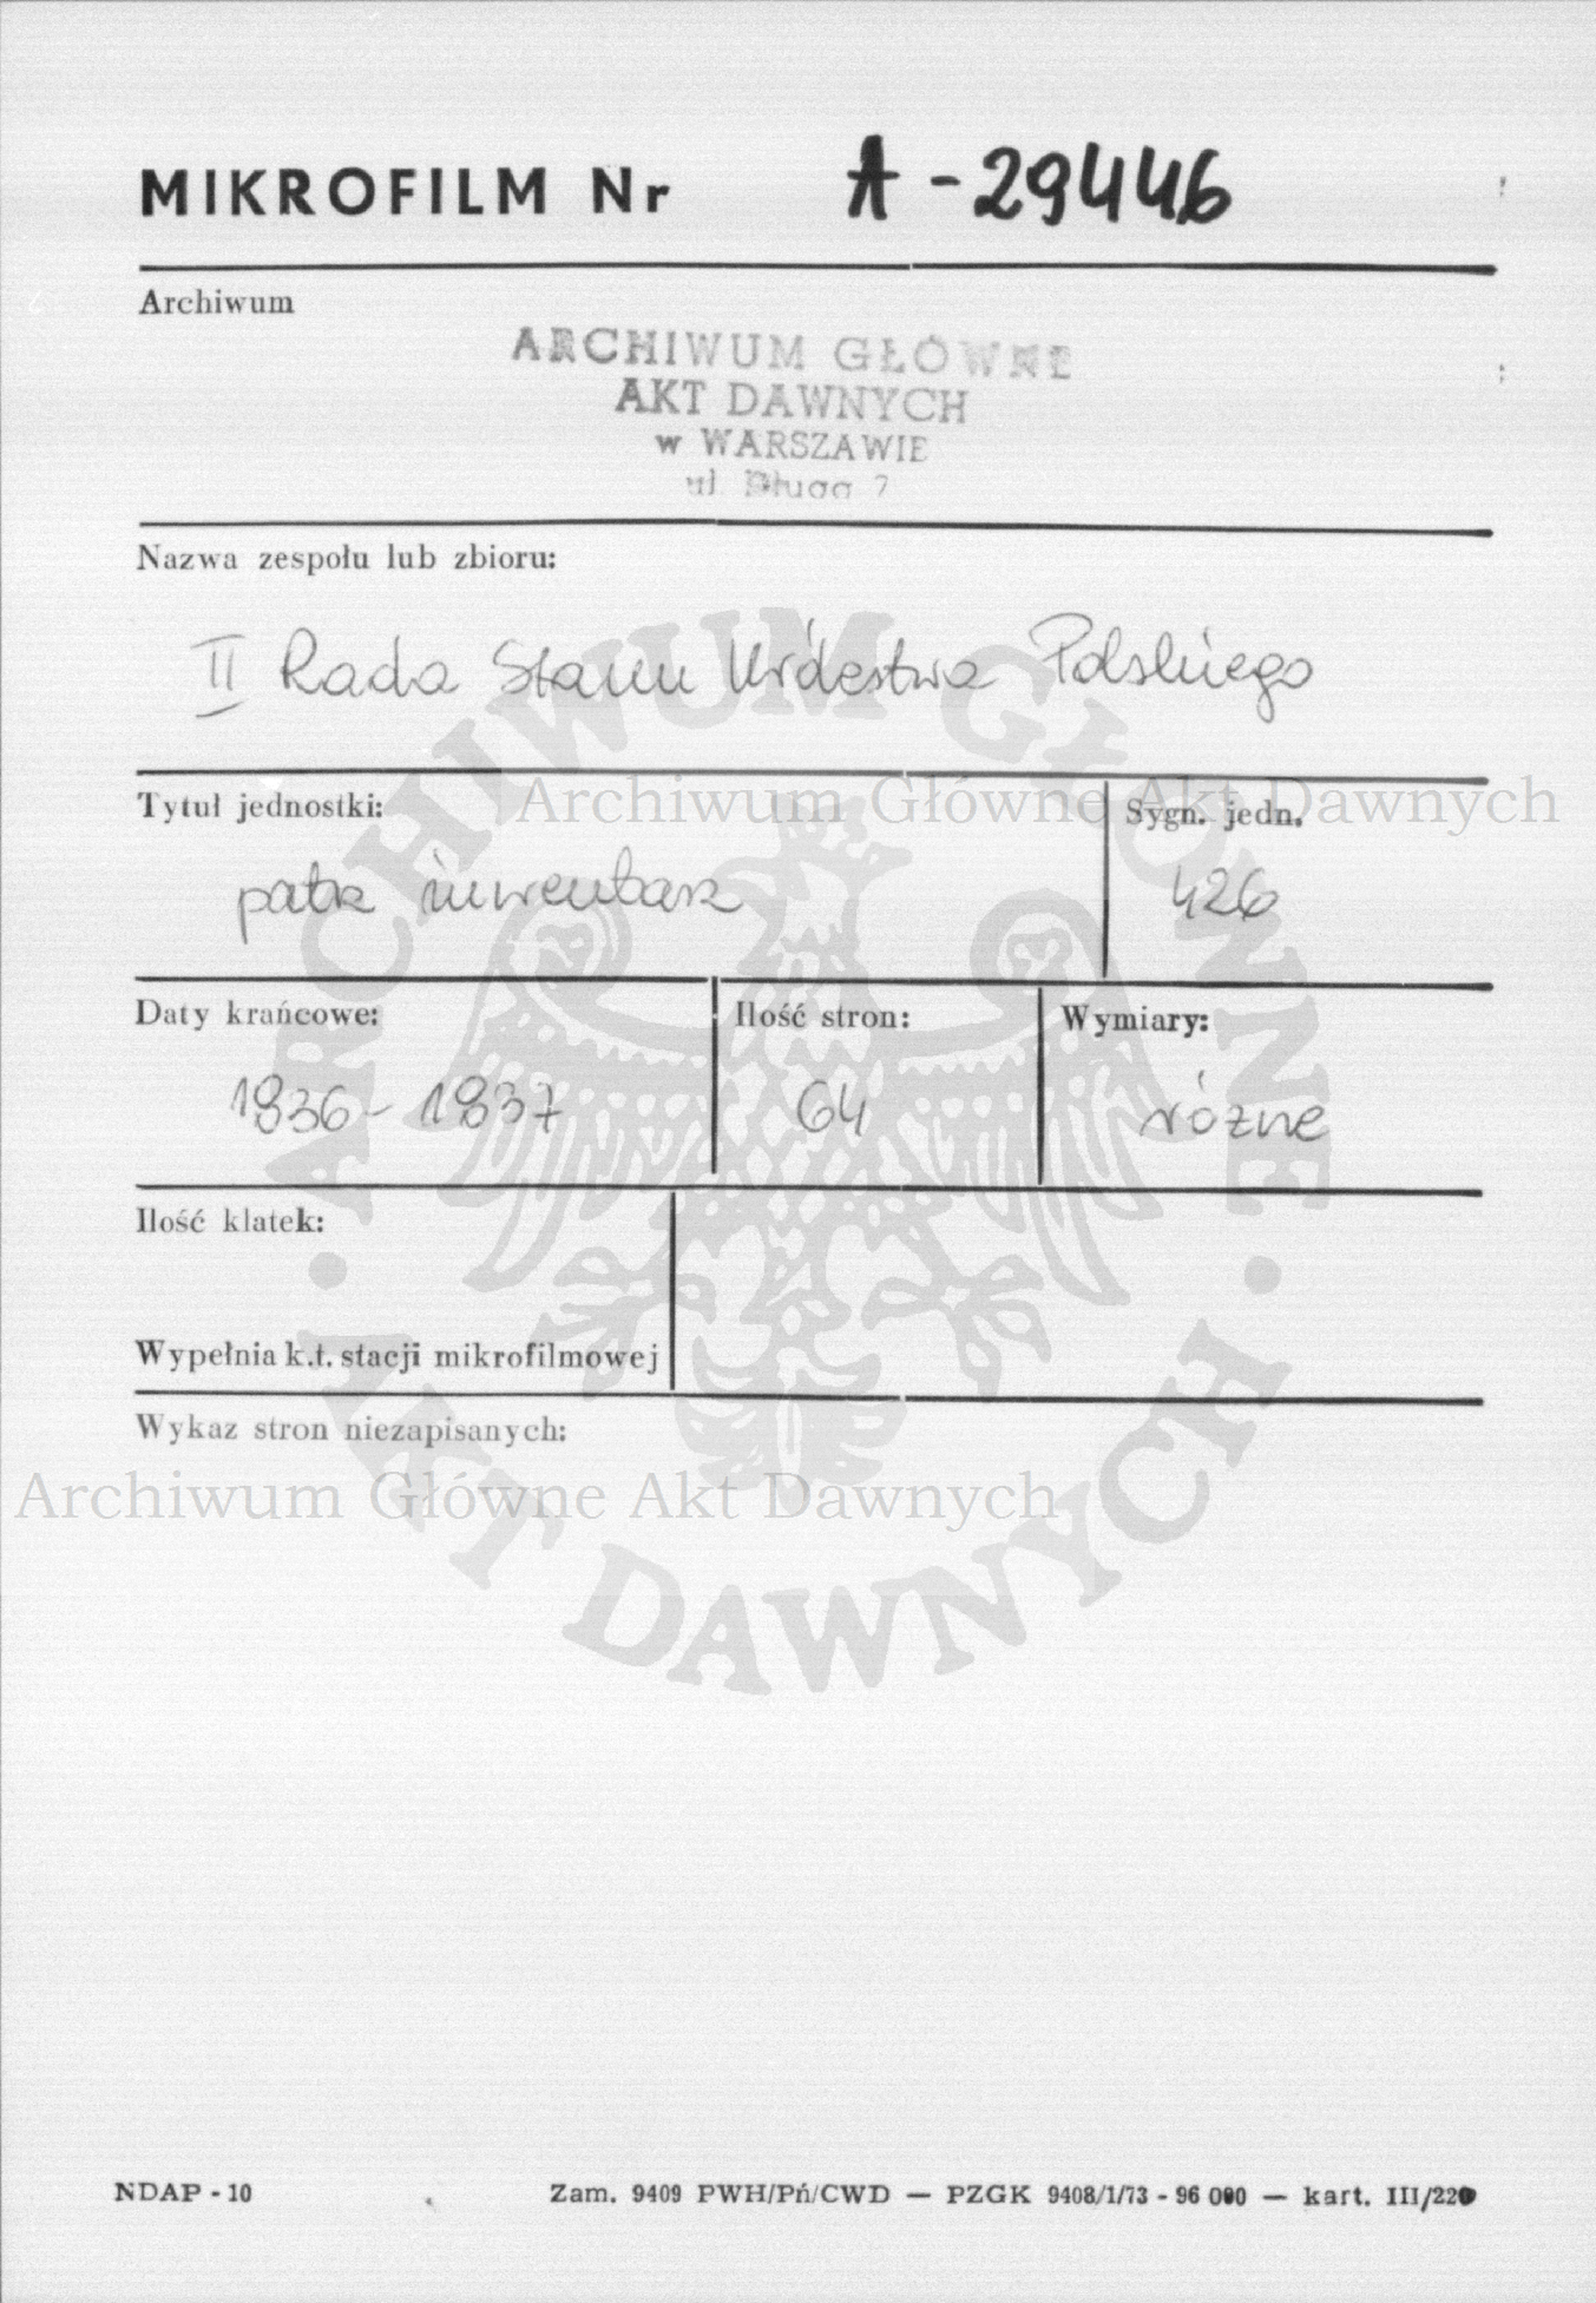 MIKROFILM Nr A-29446
Archiwum
ARCHIWUM GŁÓWNE
AKT DAWNYCH
w WARSZAWIE
ul Długa 7
Nazwa zespołu lub zbioru:
II Rada Stanu Królestwa Polskiego
Tytuł jednostki: Sygn. jedn.
Archiwum Główne Akt Dawnych
patrz inwentarz 426
Daty krańcowe: Ilość stron: Wymiary:
1836-1837 64 różne
Ilość klatek:
Wypełnia k.t. stacji mikrofilmowej
Wykaz stron niezapisanych:
Archiwum Główne Akt Dawnych
ARCHIWUM GŁÓWNE · AKT DAWNYCH ·
NDAP - 10 Zam. 9409 PWH/Pń/CWD — PZGK 9408/1/73 - 96 000 — kart. III/220